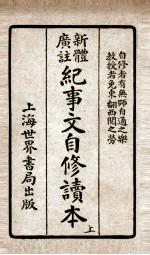 自修者有無師自通之樂
教授者免東翻西閱之勞
新體
廣註
紀事文自修讀本
上
上海世界書局出版